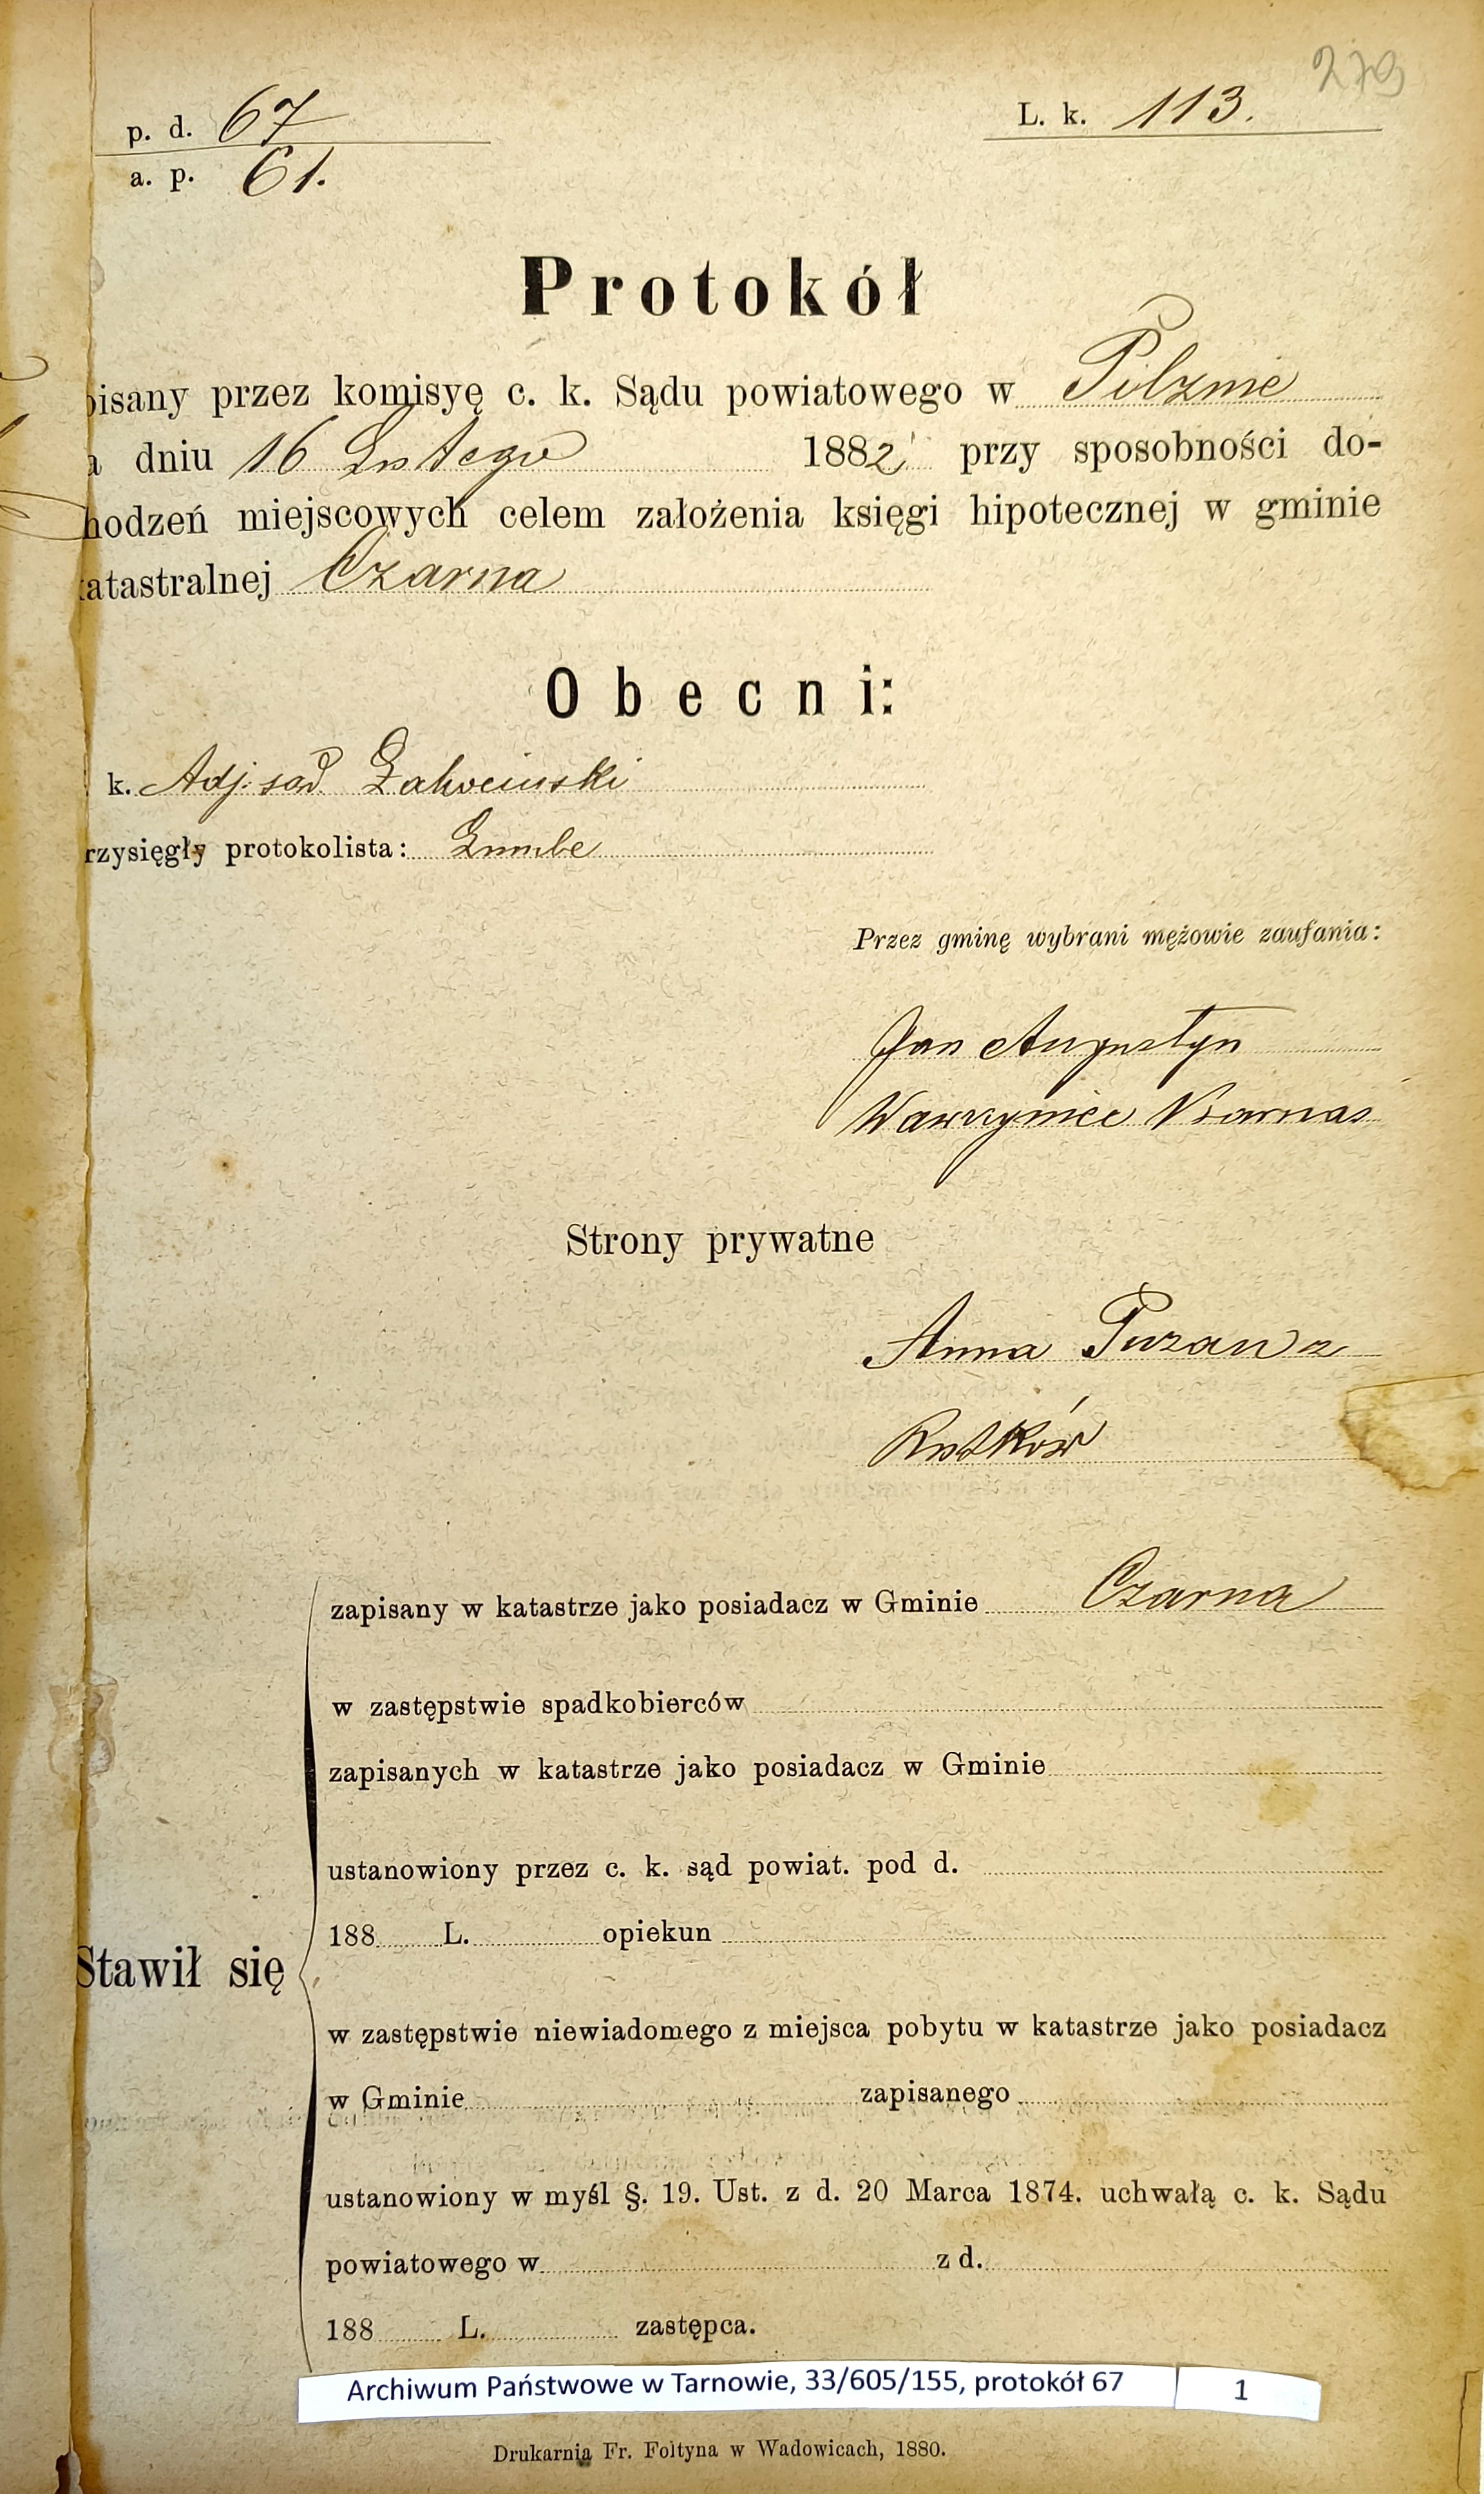 279
p. d. 67
L. k. 113.
a. p. 61.
Protokół
pisany przez komisyę c. k. Sądu powiatowego w Pilznie
a dniu 16 Lutego 1882 przy sposobności do-
hodzeń miejscowych celem założenia księgi hipotecznej w gminie
katastralnej Czarna
Obecni:
k. Adj. sąd.
rzysięgły protokolista:
Przez gminę wybrani mężowie zaufania:
Jan Augustyn
Wawrzyniec
Strony prywatne
Anna z
Rutków
zapisany w katastrze jako posiadacz w Gminie Czarna
w zastępstwie spadkobierców
zapisanych w katastrze jako posiadacz w Gminie
ustanowiony przez c. k. sąd powiat. pod d.
188 L. opiekun
Stawił się
w zastępstwie niewiadomego z miejsca pobytu w katastrze jako posiadacz
w Gminie zapisanego
ustanowiony w myśl §. 19. Ust. z d. 20 Marca 1874. uchwałą c. k. Sądu
powiatowego w z d.
188 L. zastępca.
Archiwum Państwowe w Tarnowie, 33/605/155, protokół 67 1
Drukarnia Fr. Foltyna w Wadowicach, 1880.